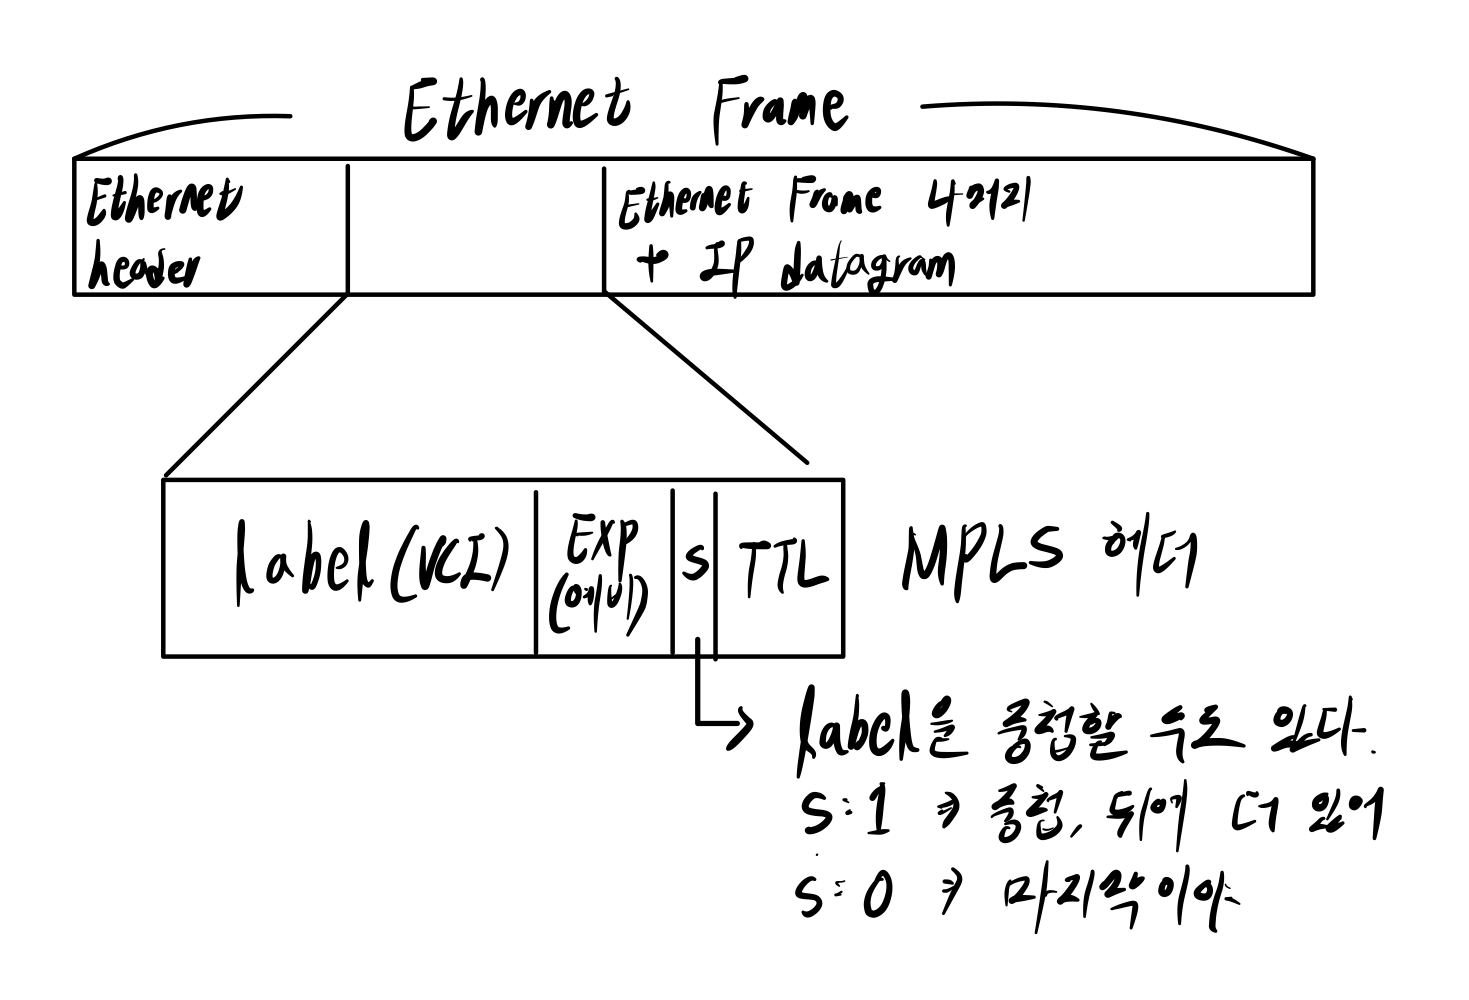 Ethernet Frame
Ethernet
header
Ethernet Frame 나머지
+ IP datagram
label(VCI)
EXP
(예비)
S
TTL
MPLS 헤더
label을 중첩할 수도 있다.
S=1 → 중첩, 뒤에 더 있어
S=0 → 마지막이야